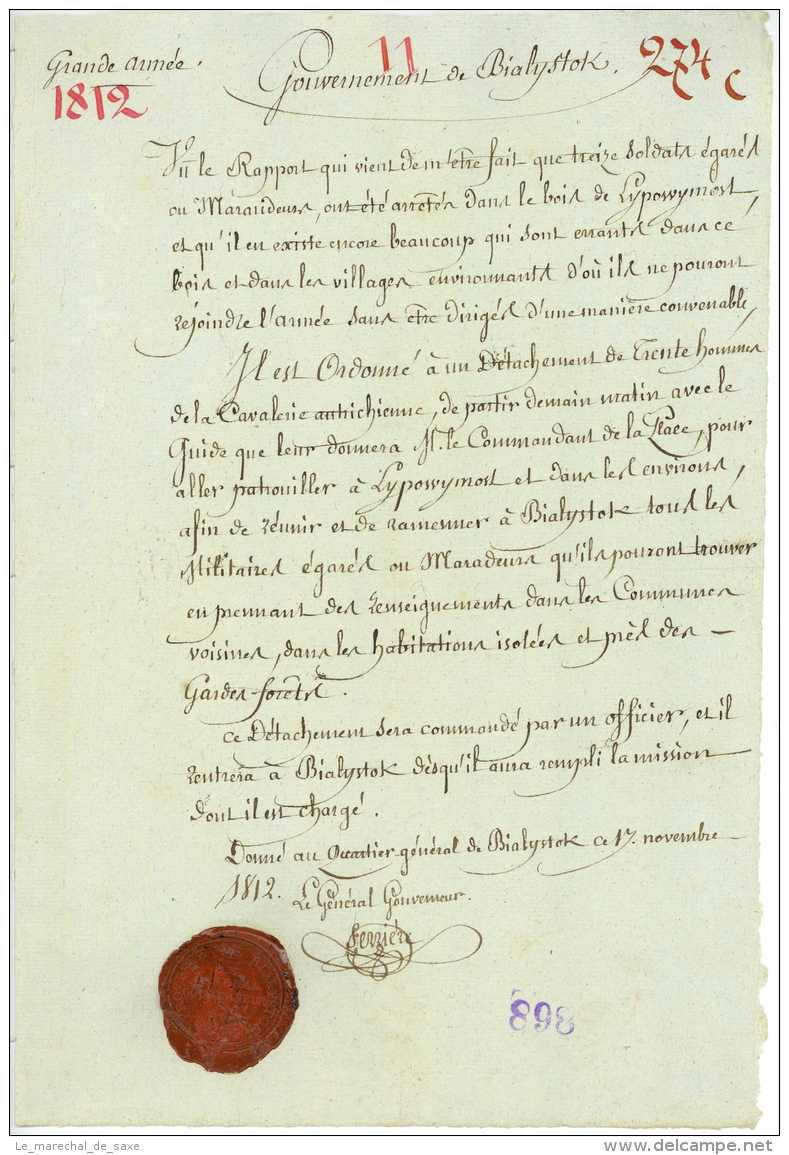 Grande armée.
11
Gouvernement de Bialystok.
274
C
1812
Vu le Rapport qui vient de m'être fait que treize Soldats égarés
ou Maraudeurs, ont été arretés dans le bois de Lypowymost,
et qu'il en existe encore beaucoup qui sont errants dans ce
bois et dans les villages environnants d'où ils ne pouront
rejoindre l'armée sans être dirigés d'une manière convenable,
Il est Ordonné à un Détachement de Trente hommes
de la Cavalerie autrichienne, de partir demain matin avec le
Guide que leur donnera M. le Commandant de la Place, pour
aller patrouiller à Lypowymost et dans les environs,
afin de réunir et de ramenner à Bialystok tous les
Militaires égarés ou Maradeurs qu'ils pouront trouver
en prennant des renseignements dans les Communes
voisines, dans les habitations isolées et près des —
Gardes-forêts.
Ce Détachement sera commandé par un officier, et il
rentrera à Bialystok dès qu'il aura rempli la mission
dont il est chargé.
Donné au Quartier général de Bialystok ce 17. novembre
1812. Le Général Gouverneur.
Ferrière
898
Le_marechal_de_saxe
www.delcampe.net